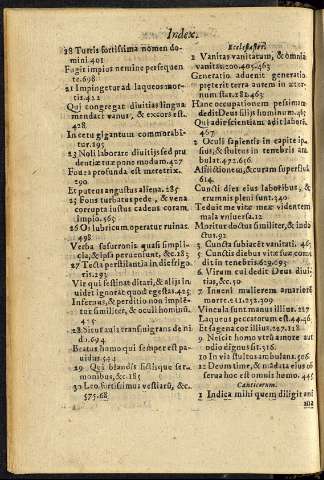 Index.
18 Turris fortissima nomen domini. 401
Fugit impius nemine persequente. 698
21 Impingetur ad laqueos mortis. 422
Qui congregat divitias lingua mendacii vanus, & excors est. 428
In cetu gigantum commorabitur. 195
23 Noli laborare divitiis sed prudentiæ tuæ pone modum. 427
Fovea profunda est meretrix. 290
Et puteus angustus aliena. 285
25 Fons turbatus pede, & vena corrupta iustus cadens coram impio. 565
26 Os lubricum operatur ruinas. 498
Verba susurronis quasi simplicia, & ipsa perveniunt, &c. 183
27 Tecta perstillantia in die frigoris. 293
Vir qui festinat ditari, & aliis invidet ignorat quod egestas. 425
Infernus, & perditio non implētur similiter, & oculi hominū. 425
28 Sicut avis transmigrans de nido. 694
Beatus homo qui semper est pavidus. 594
29 Qui blandis fictisque sermonibus, &c. 185
30 Leo fortissimus bestiarū, &c. 575. 68
Ecclesiastes.
2 Vanitas vanitatum, & omnia vanitas. 200. 405. 463
Generatio advenit generatio præterit terra autem in æternum stat. 282. 463
Hanc occupationem pessimam dedit Deus filiis hominum. 465
Qui addit scientiam addit laborē. 467
2 Oculi sapientis in capite ipsius, & stultus in tenebris ambulat. 472. 616
Afflictione, & curam superflua. 614
Cuncti dies eius laboribus, & erumnis pleni sunt. 340
Teduit me vitæ meæ videntem mala universa. 12
Moritur doctus similiter, & indoctus. 92
3 Cuncta subiacēt vanitati. 463
5 Cunctis diebus vitæ suæ comedit in tenebris. 629. 693
6 Virum cui dedit Deus divitias, &c. 50
7 Inveni mulierem amariorē morte. 211. 252. 309
Vincula sunt manus illius. 217
Laqueus venatorum est. 44. 46
Et sagena cor illius. 297. 118
9 Nescit homo utrū amore aut odio dignus sit. 516
10 In via stultus ambulans. 506
12 Deum time, & mādata eius observa hoc est omnis homo. 445
Canticorum.
1 Indica mihi quem diligit ani
ma